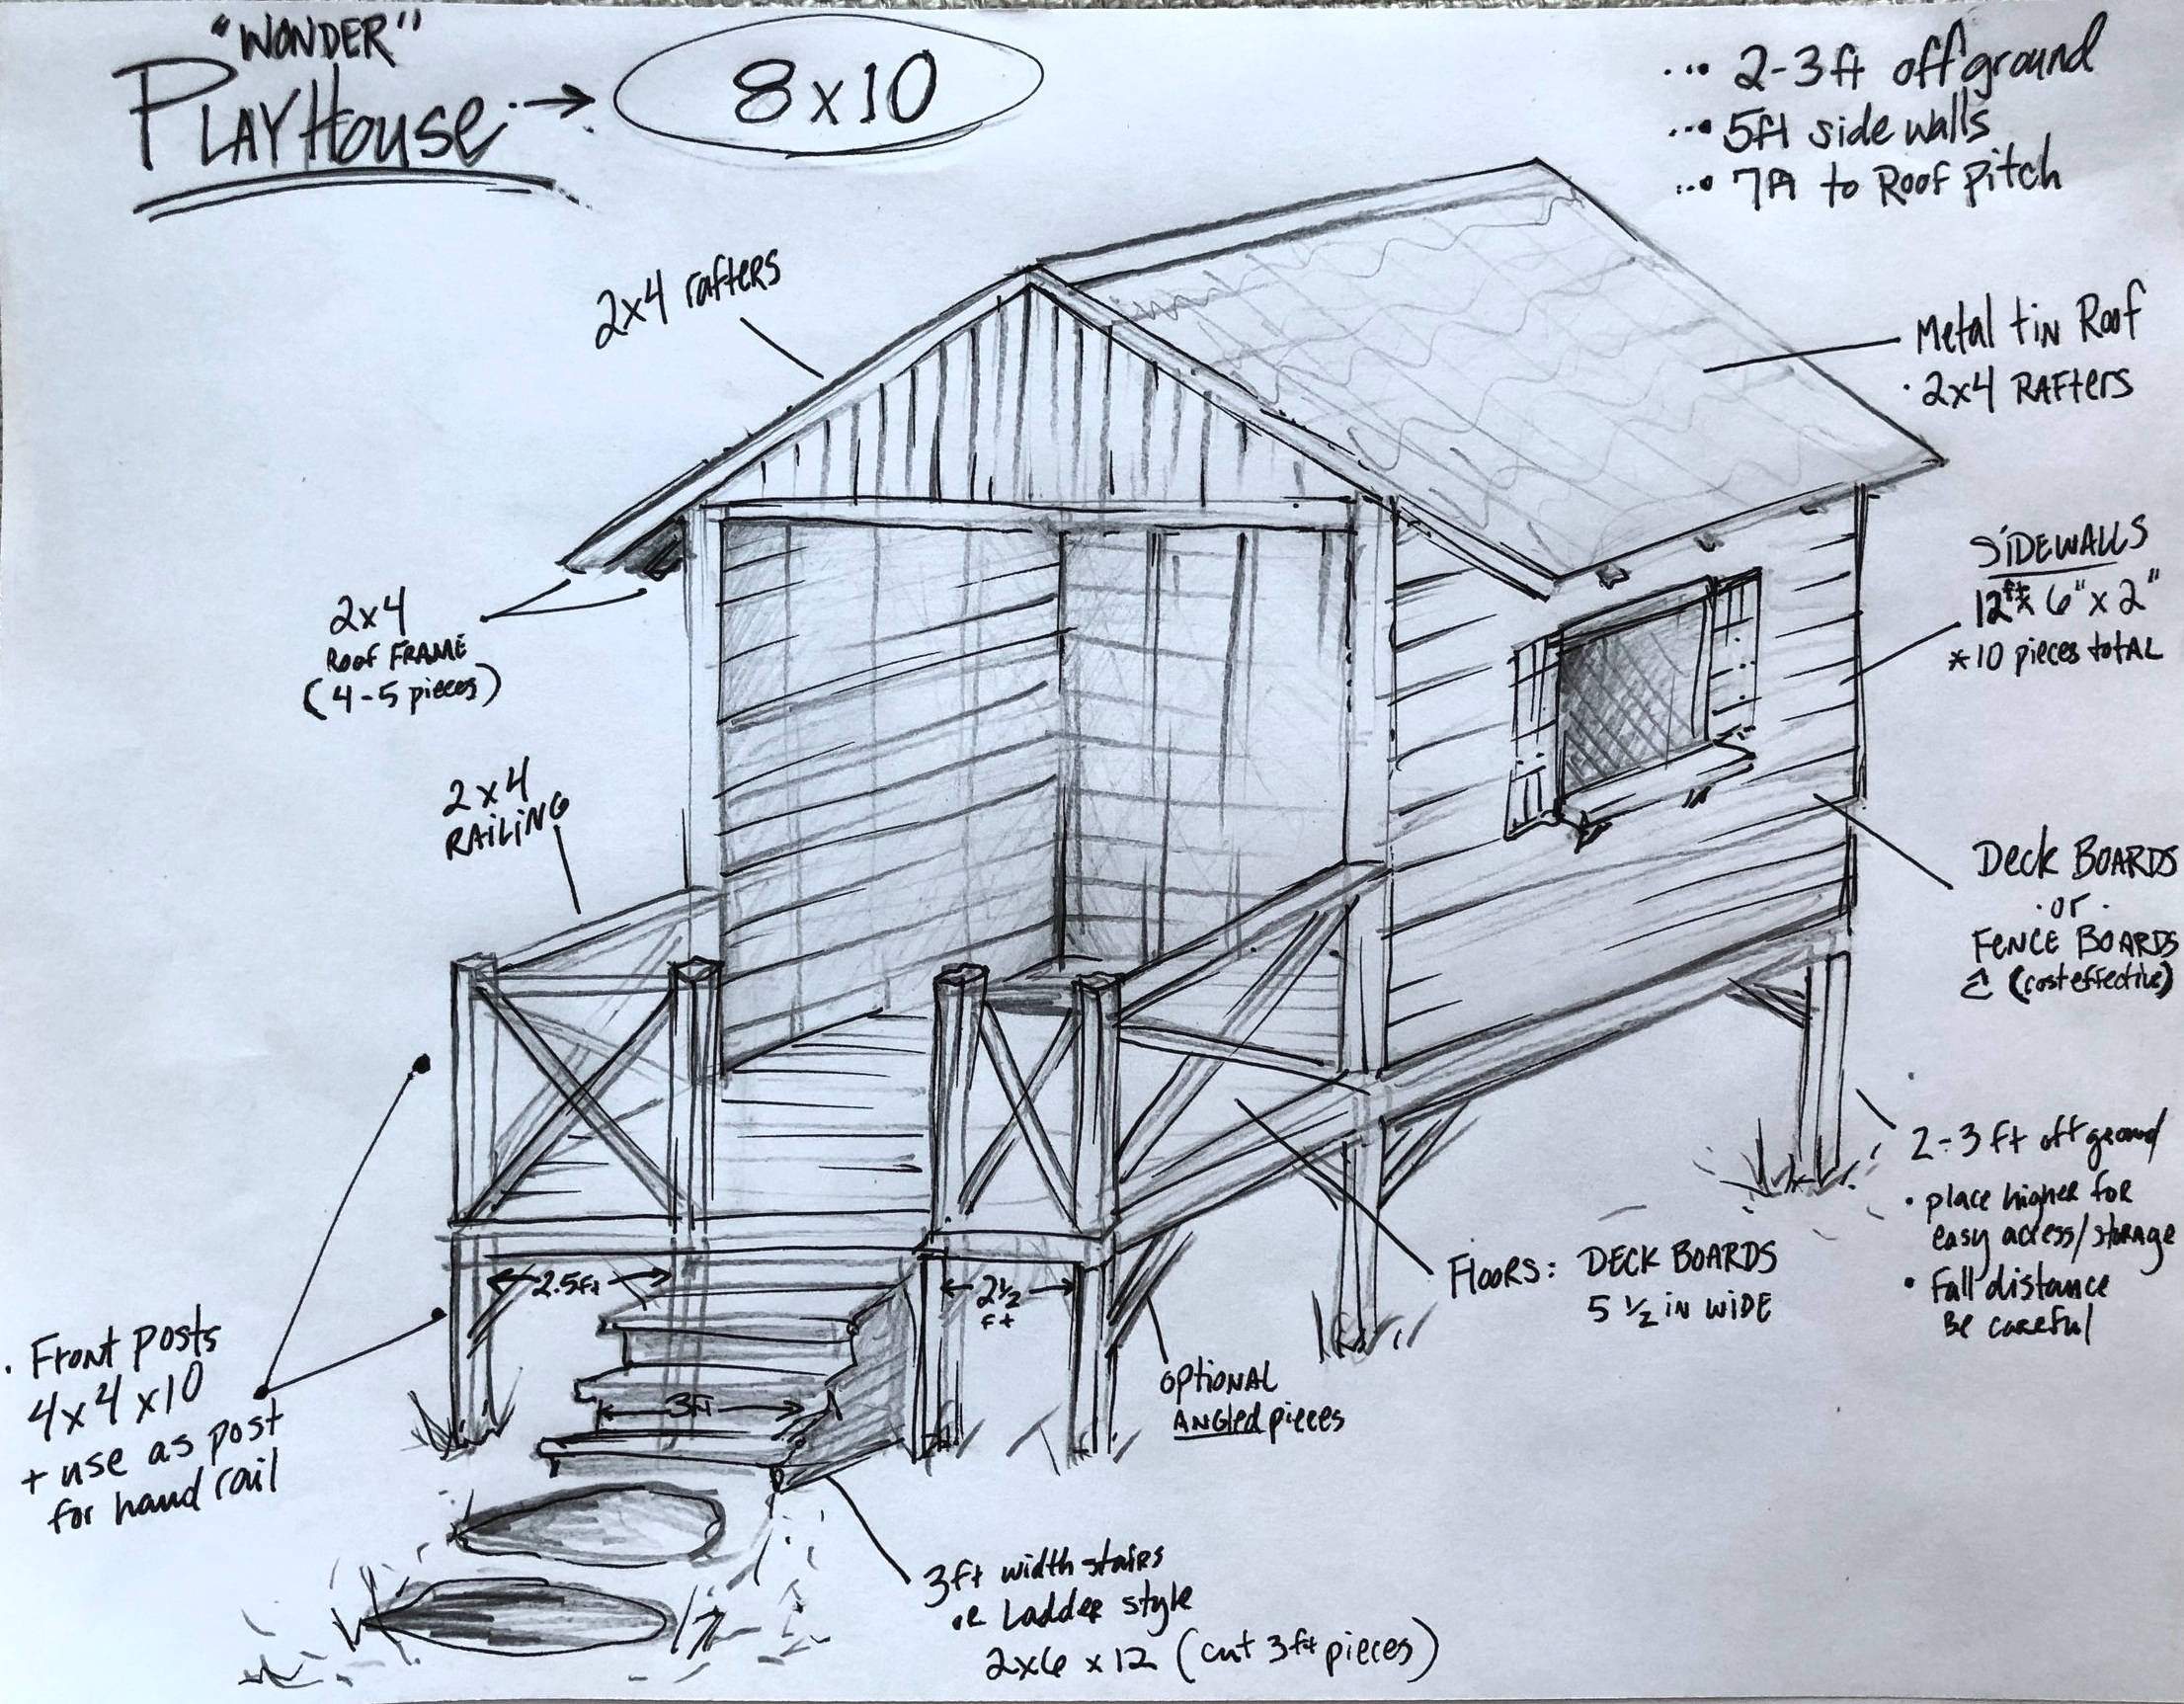 "WONDER"
PLAYHOUSE → 8x10
• 2-3ft off ground
• 5ft side walls
• 7ft to Roof pitch
2x4 rafters
Metal tin Roof
• 2x4 RAFTERS
2x4
Roof FRAME
(4-5 pieces)
SIDEWALLS
12ft x 6" x 2"
*10 pieces total
2x4
RAILING
Deck BOARDS
• or •
FENCE BOARDS
(cost effective)
2-3 ft off ground
• place higher for
easy access/storage
• Fall distance
Be careful
FlOORS: DECK BOARDS
5 1/2 in WIDE
2.5ft
2 1/2
Ft
3ft
• Front posts
4x4x10
+ use as post
for hand rail
OPTIONAL
ANGled pieces
3ft width stairs
or Ladder style
2x6 x 12 (cut 3ft pieces)